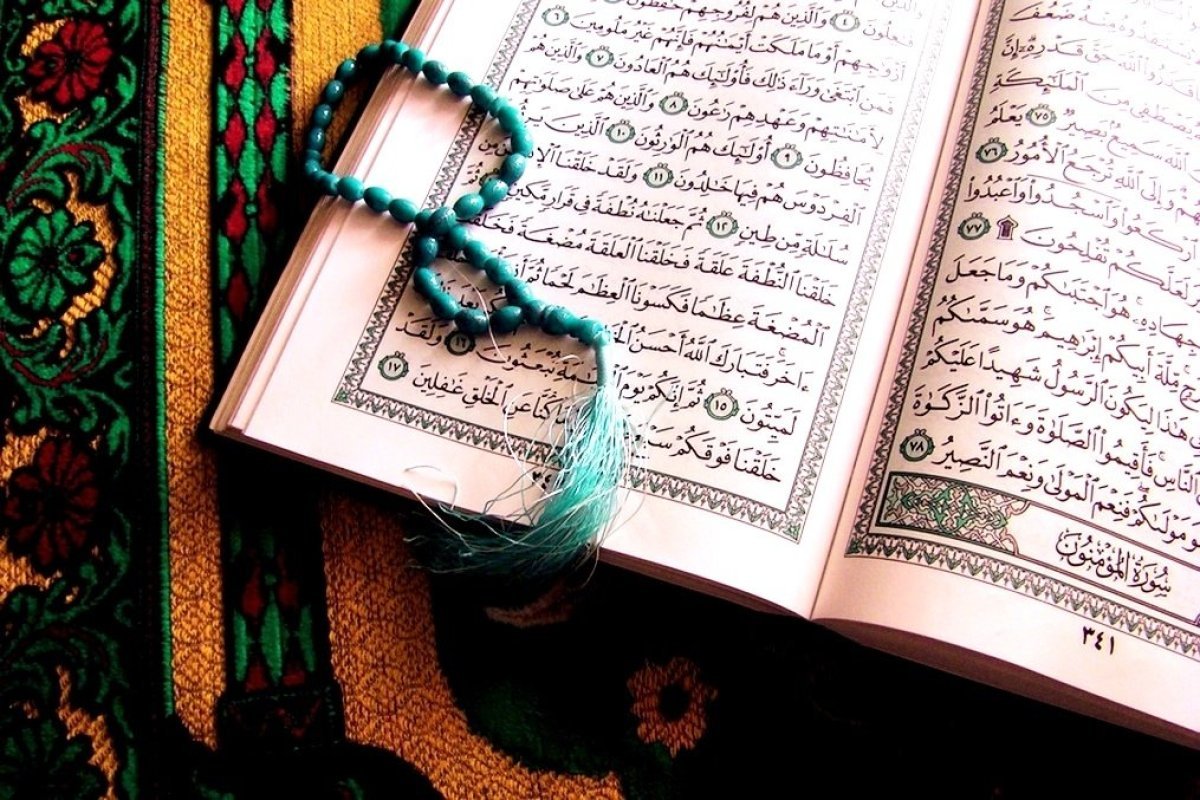 مِنْهُ ضَعُفَ
ٱللَّهَ حَقَّ قَدْرِهِۦٓ إِنَّ
يَصْطَفِى مِنَ ٱلْمَلَٰٓئِكَةِ
ٱللَّهَ سَمِيعٌۢ بَصِيرٌ ٧٥ يَعْلَمُ
وَإِلَى ٱللَّهِ تُرْجَعُ ٱلْأُمُورُ ٧٦
ٱرْكَعُوا۟ وَٱسْجُدُوا۟ وَٱعْبُدُوا۟
لَعَلَّكُمْ تُفْلِحُونَ ۩ ٧٧
جِهَادِهِۦ هُوَ ٱجْتَبَىٰكُمْ وَمَا جَعَلَ
مِّلَّةَ أَبِيكُمْ إِبْرَٰهِيمَ هُوَ سَمَّىٰكُمُ
هَٰذَا لِيَكُونَ ٱلرَّسُولُ شَهِيدًا عَلَيْكُمْ
ٱلنَّاسِ فَأَقِيمُوا۟ ٱلصَّلَوٰةَ وَءَاتُوا۟ ٱلزَّكَوٰةَ
مَوْلَىٰكُمْ فَنِعْمَ ٱلْمَوْلَىٰ وَنِعْمَ ٱلنَّصِيرُ ٧٨
سُورَةُ المُؤْمِنُونَ
٣٤١
فَٰعِلُونَ ٤ وَٱلَّذِينَ هُمْ لِفُرُوجِهِمْ حَٰفِظُونَ
أَزْوَٰجِهِمْ أَوْ مَا مَلَكَتْ أَيْمَٰنُهُمْ فَإِنَّهُمْ غَيْرُ مَلُومِينَ ٦
فَمَنِ ٱبْتَغَىٰ وَرَآءَ ذَٰلِكَ فَأُو۟لَٰٓئِكَ هُمُ ٱلْعَادُونَ ٧ وَٱلَّذِينَ هُمْ
لِأَمَٰنَٰتِهِمْ وَعَهْدِهِمْ رَٰعُونَ ٨ وَٱلَّذِينَ هُمْ عَلَىٰ صَلَوَٰتِهِمْ
يُحَافِظُونَ ٩ أُو۟لَٰٓئِكَ هُمُ ٱلْوَٰرِثُونَ ١٠ ٱلَّذِينَ
ٱلْفِرْدَوْسَ هُمْ فِيهَا خَٰلِدُونَ ١١ وَلَقَدْ خَلَقْنَا مِن
سُلَٰلَةٍ مِّن طِينٍ ١٢ ثُمَّ جَعَلْنَٰهُ نُطْفَةً فِى قَرَارٍ مَّكِينٍ
خَلَقْنَا ٱلنُّطْفَةَ عَلَقَةً فَخَلَقْنَا ٱلْعَلَقَةَ مُضْغَةً فَخَلَقْنَا
ٱلْمُضْغَةَ عِظَٰمًا فَكَسَوْنَا ٱلْعِظَٰمَ لَحْمًا ثُمَّ
ءَاخَرَ فَتَبَارَكَ ٱللَّهُ أَحْسَنُ
لَمَيِّتُونَ ١٥ ثُمَّ إِنَّكُمْ يَوْمَ تُبْعَثُونَ ١٦ وَلَقَدْ
خَلَقْنَا فَوْقَكُمْ كُنَّا عَنِ ٱلْخَلْقِ غَٰفِلِينَ ١٧